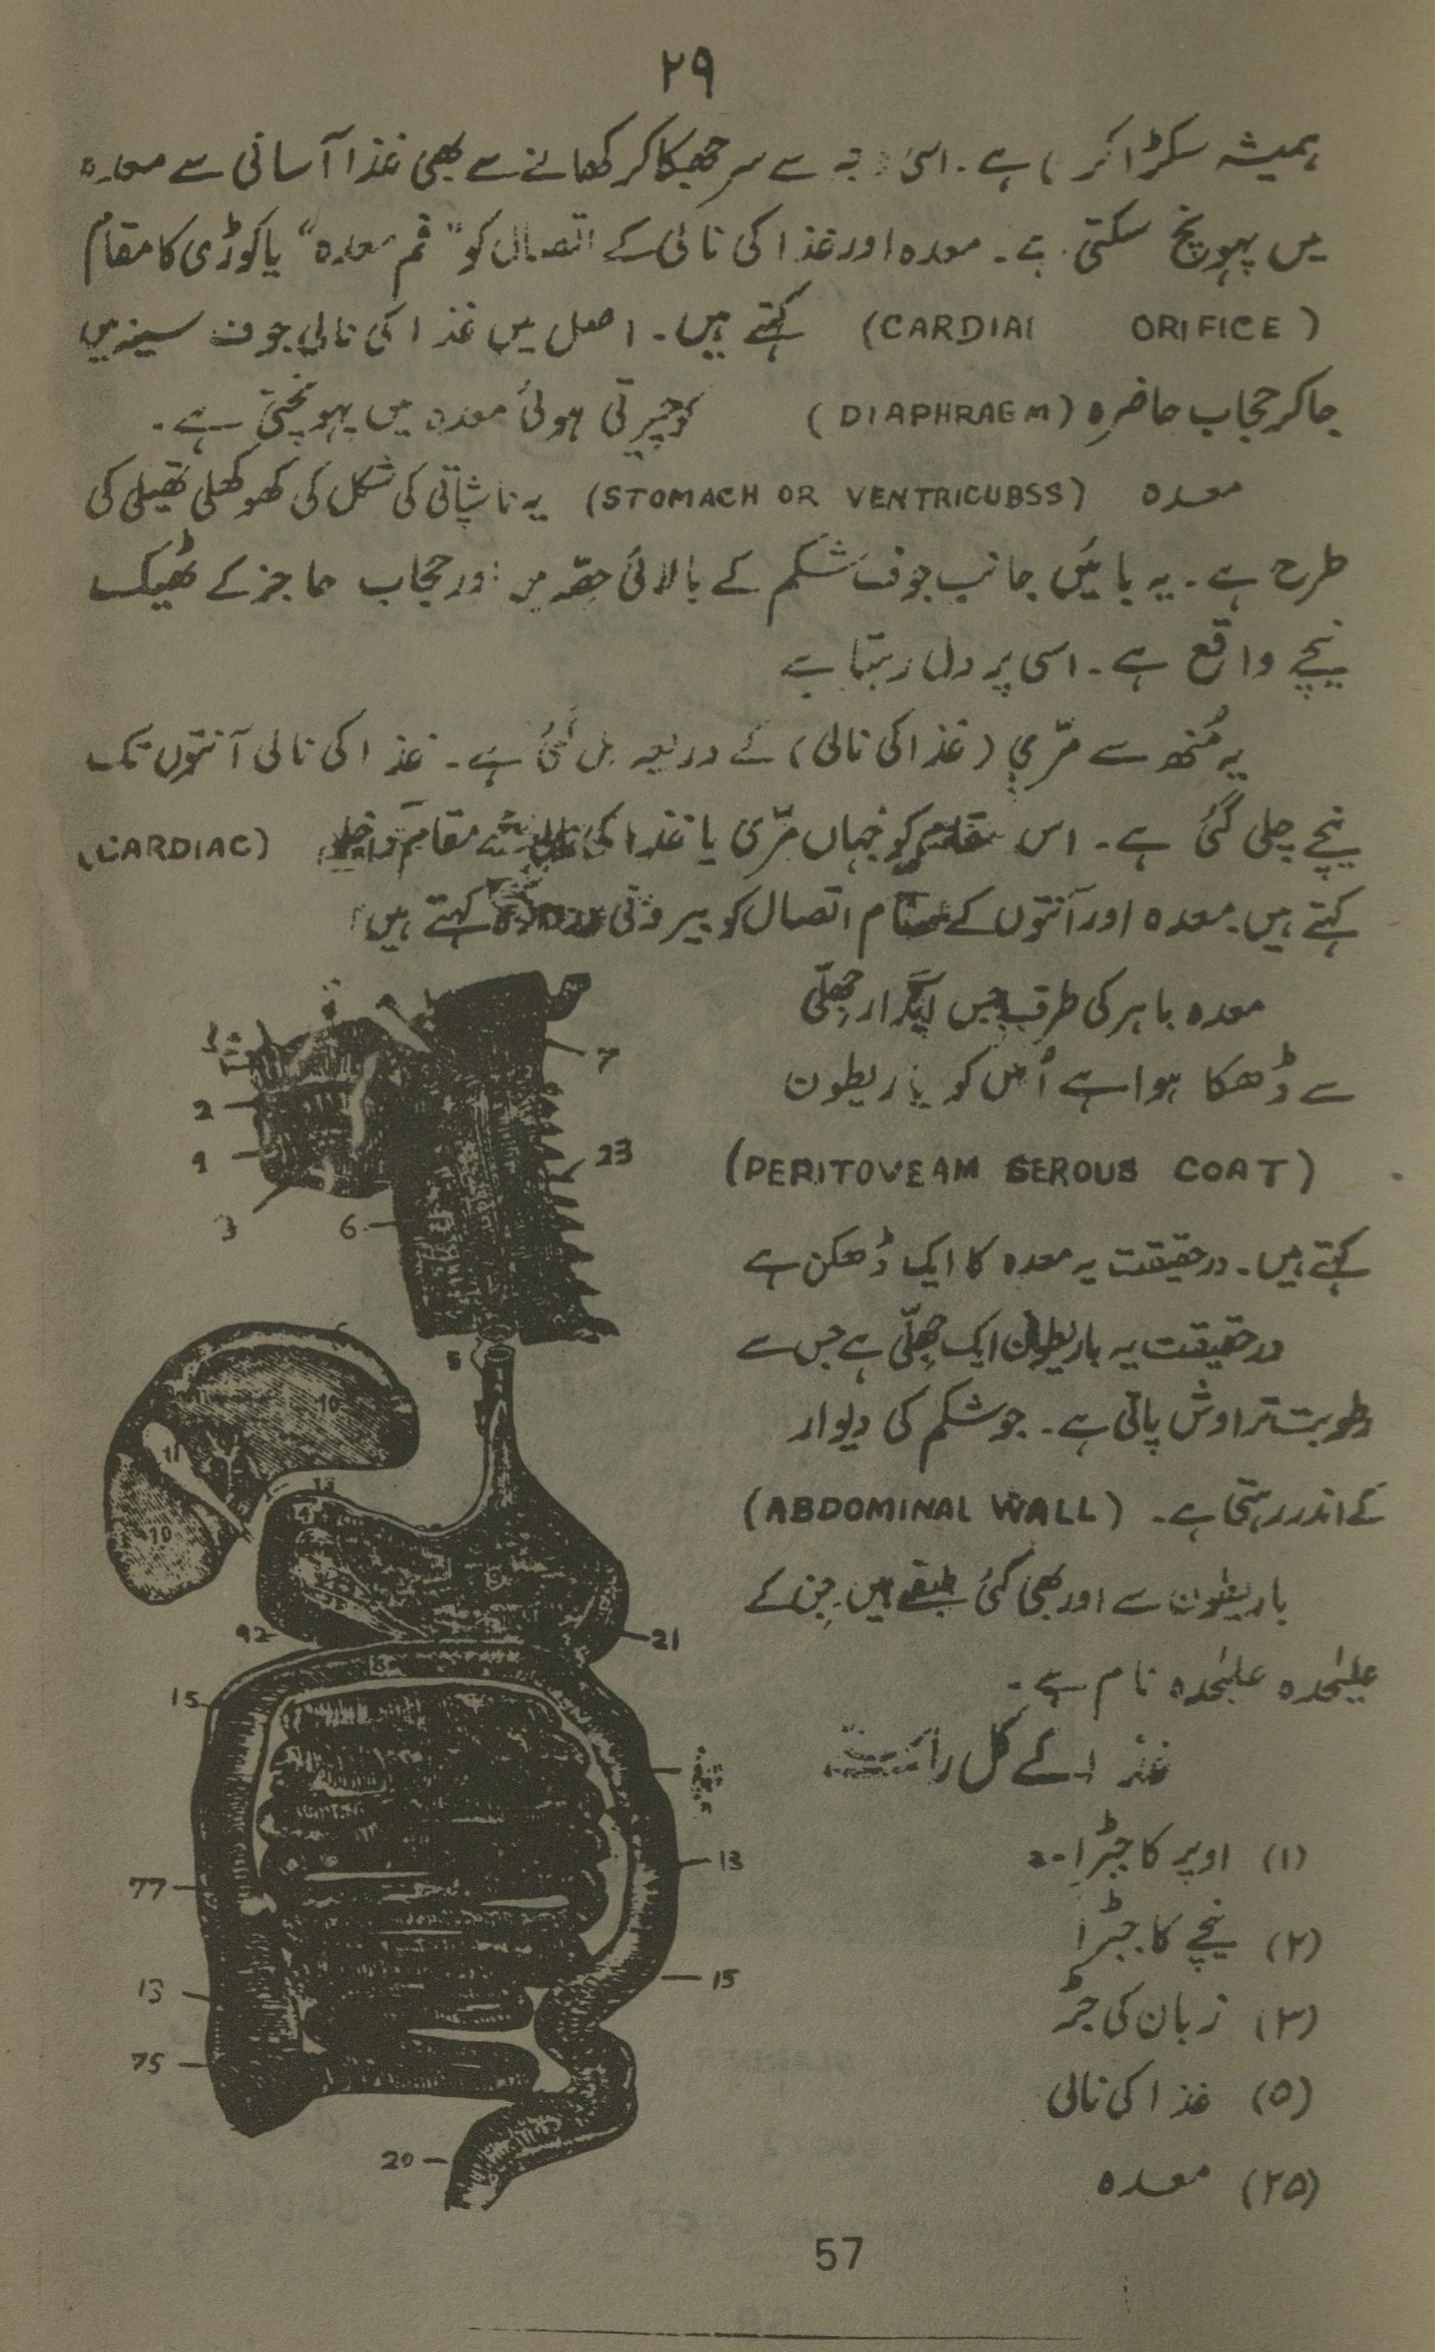 ۲۹
ہمیشہ سکڑا کر ہے۔ اسی سے سر جھکا کر کھانے سے بھی غذا آسانی سے معدہ
میں پہونچ سکتی ہے۔ معدہ اور غذا کی نالی کے اتصال کو "فم معدہ" یا کوڑی کا مقام
(CARDIAI ORIFICE) کہتے ہیں۔ اصل میں غذا کی نالی جوف سینہ میں
جا کر حجاب حاضرہ (DIAPHRAGM) کو چیرتی ہوئی معدہ میں پہونچتی ہے۔
معدہ (STOMACH OR VENTRICUBSS) یہ ناشپاتی کی شکل کی کھوکھلی تھیلی کی
طرح ہے۔ یہ بائیں جانب جوف شکم کے بالائی حصّہ میں اور حجاب حاجز کے ٹھیک
نیچے واقع ہے۔ اسی پر دل رہتا ہے
یہ مُنھ سے مرّی (غذا کی نالی) کے ذریعہ مل گئی ہے۔ غذا کی نالی آنتوں تک
نیچے چلی گئی ہے۔ اس مقام کو جہاں مرّی یا غذا کی مقام (CARDIAC)
کہتے ہیں۔ معدہ اور آنتوں کے مقام اتصال کو بیرونی کہتے ہیں
معدہ باہر کی طرف جس جھلّی
سے ڈھکا ہوا ہے اُس کو باریطون
(PERITOVEAM SEROUS COAT)
کہتے ہیں۔ درحقیقت یہ معدہ کا ایک ڈھکن ہے
درحقیقت یہ باریطون ایک جھلّی ہے جس سے
رطوبت تراوش پاتی ہے۔ جو شکم کی دیوار
کے اندر رہتی ہے۔ (ABDOMINAL WALL)
باریطون سے اور بھی کئی طبقے ہیں جن کے
علیٰحدہ علیٰحدہ نام ہے۔
غذا کے کل راستے
(۱) اوپر کا جبڑا
(۲) نیچے کا جبڑا
(۳) زبان کی جڑ
(۵) غذا کی نالی
(۲۵) معدہ
7
2
9
23
3
6
5
10
11
10
92
21
15
13
77
15
13
75
20
57